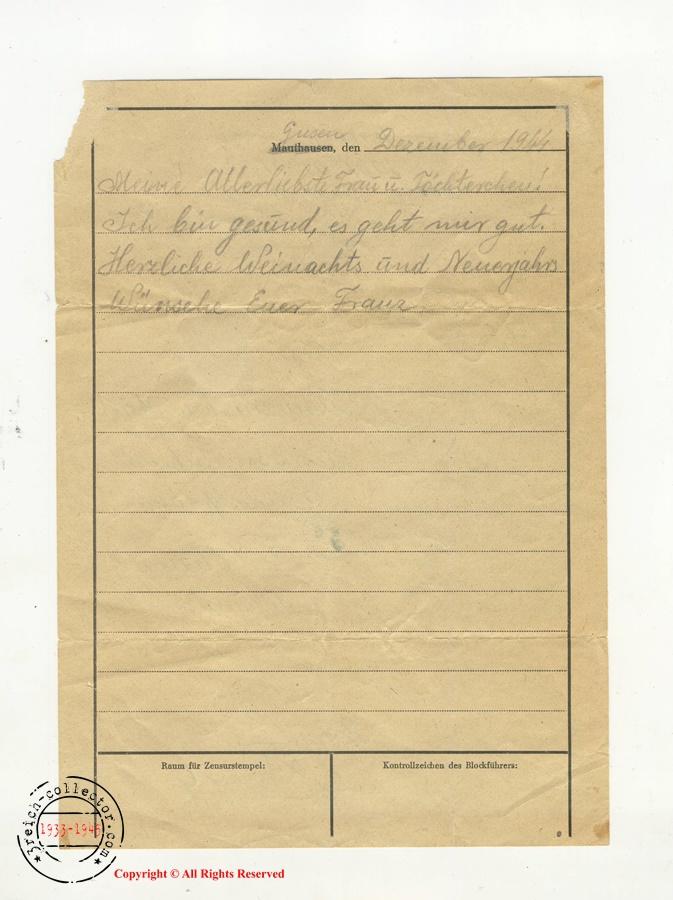 Gusen
Mauthausen, den Dezember 1944
Meine Allerliebste Frau u. Töchterchen!
Ich bin gesund, es geht mir gut.
Herzliche Weinachts und Neuerjahrs
Wünsche Euer Franz
Raum für Zensurstempel:
Kontrollzeichen des Blockführers:
3reich-collector.com
1933-1945
Copyright © All Rights Reserved